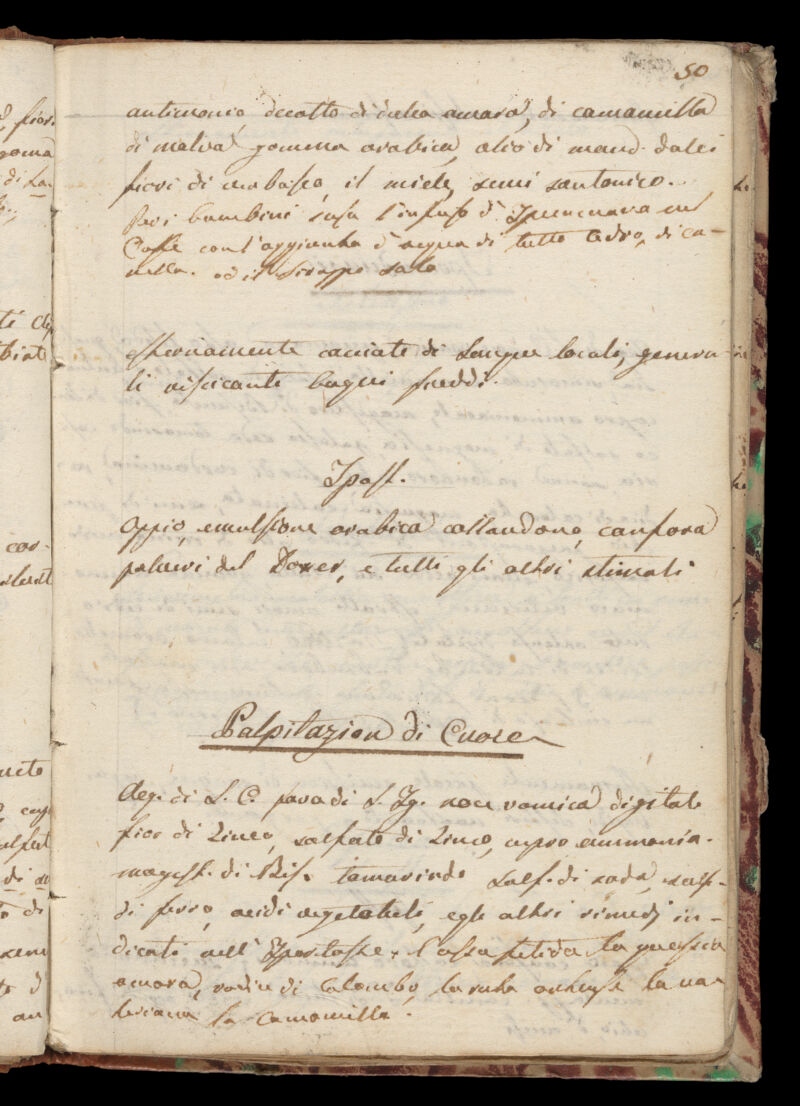 50
antimonio, decotto di dulca amara, di camamilla
di malva gomma arabica, olio di mand. dolci
fiori di verbasco, il miele, semi santonico.
Pei bambini s'usa l'infuso d'Ipecucuana nel
Caffè con l'aggiunta d'acqua di tutto cedro, di ca-
nella. od il siroppo
esternamente cacciate di sangue locali, genera-
li viscicante bagni freddi.
Ipost.
Oppio, emulsione arabica canfora
polveri del Dover, e tutti gli altri stimoli
Palpitazion di Cuore
Acq. di L. C. fava di S. Ig. noce vomica digitale
fior di Zinco, solfato di Zinco, cupro ammonia.
magist. di Bis. tamarindo solf. di soda, solf.
di ferro, acidi vegetabili, e gli altri rimedj in-
dicati nell' l'assa fetida la quassia
amara, radice di Colombo, la ruta la va
leriana la camomilla.